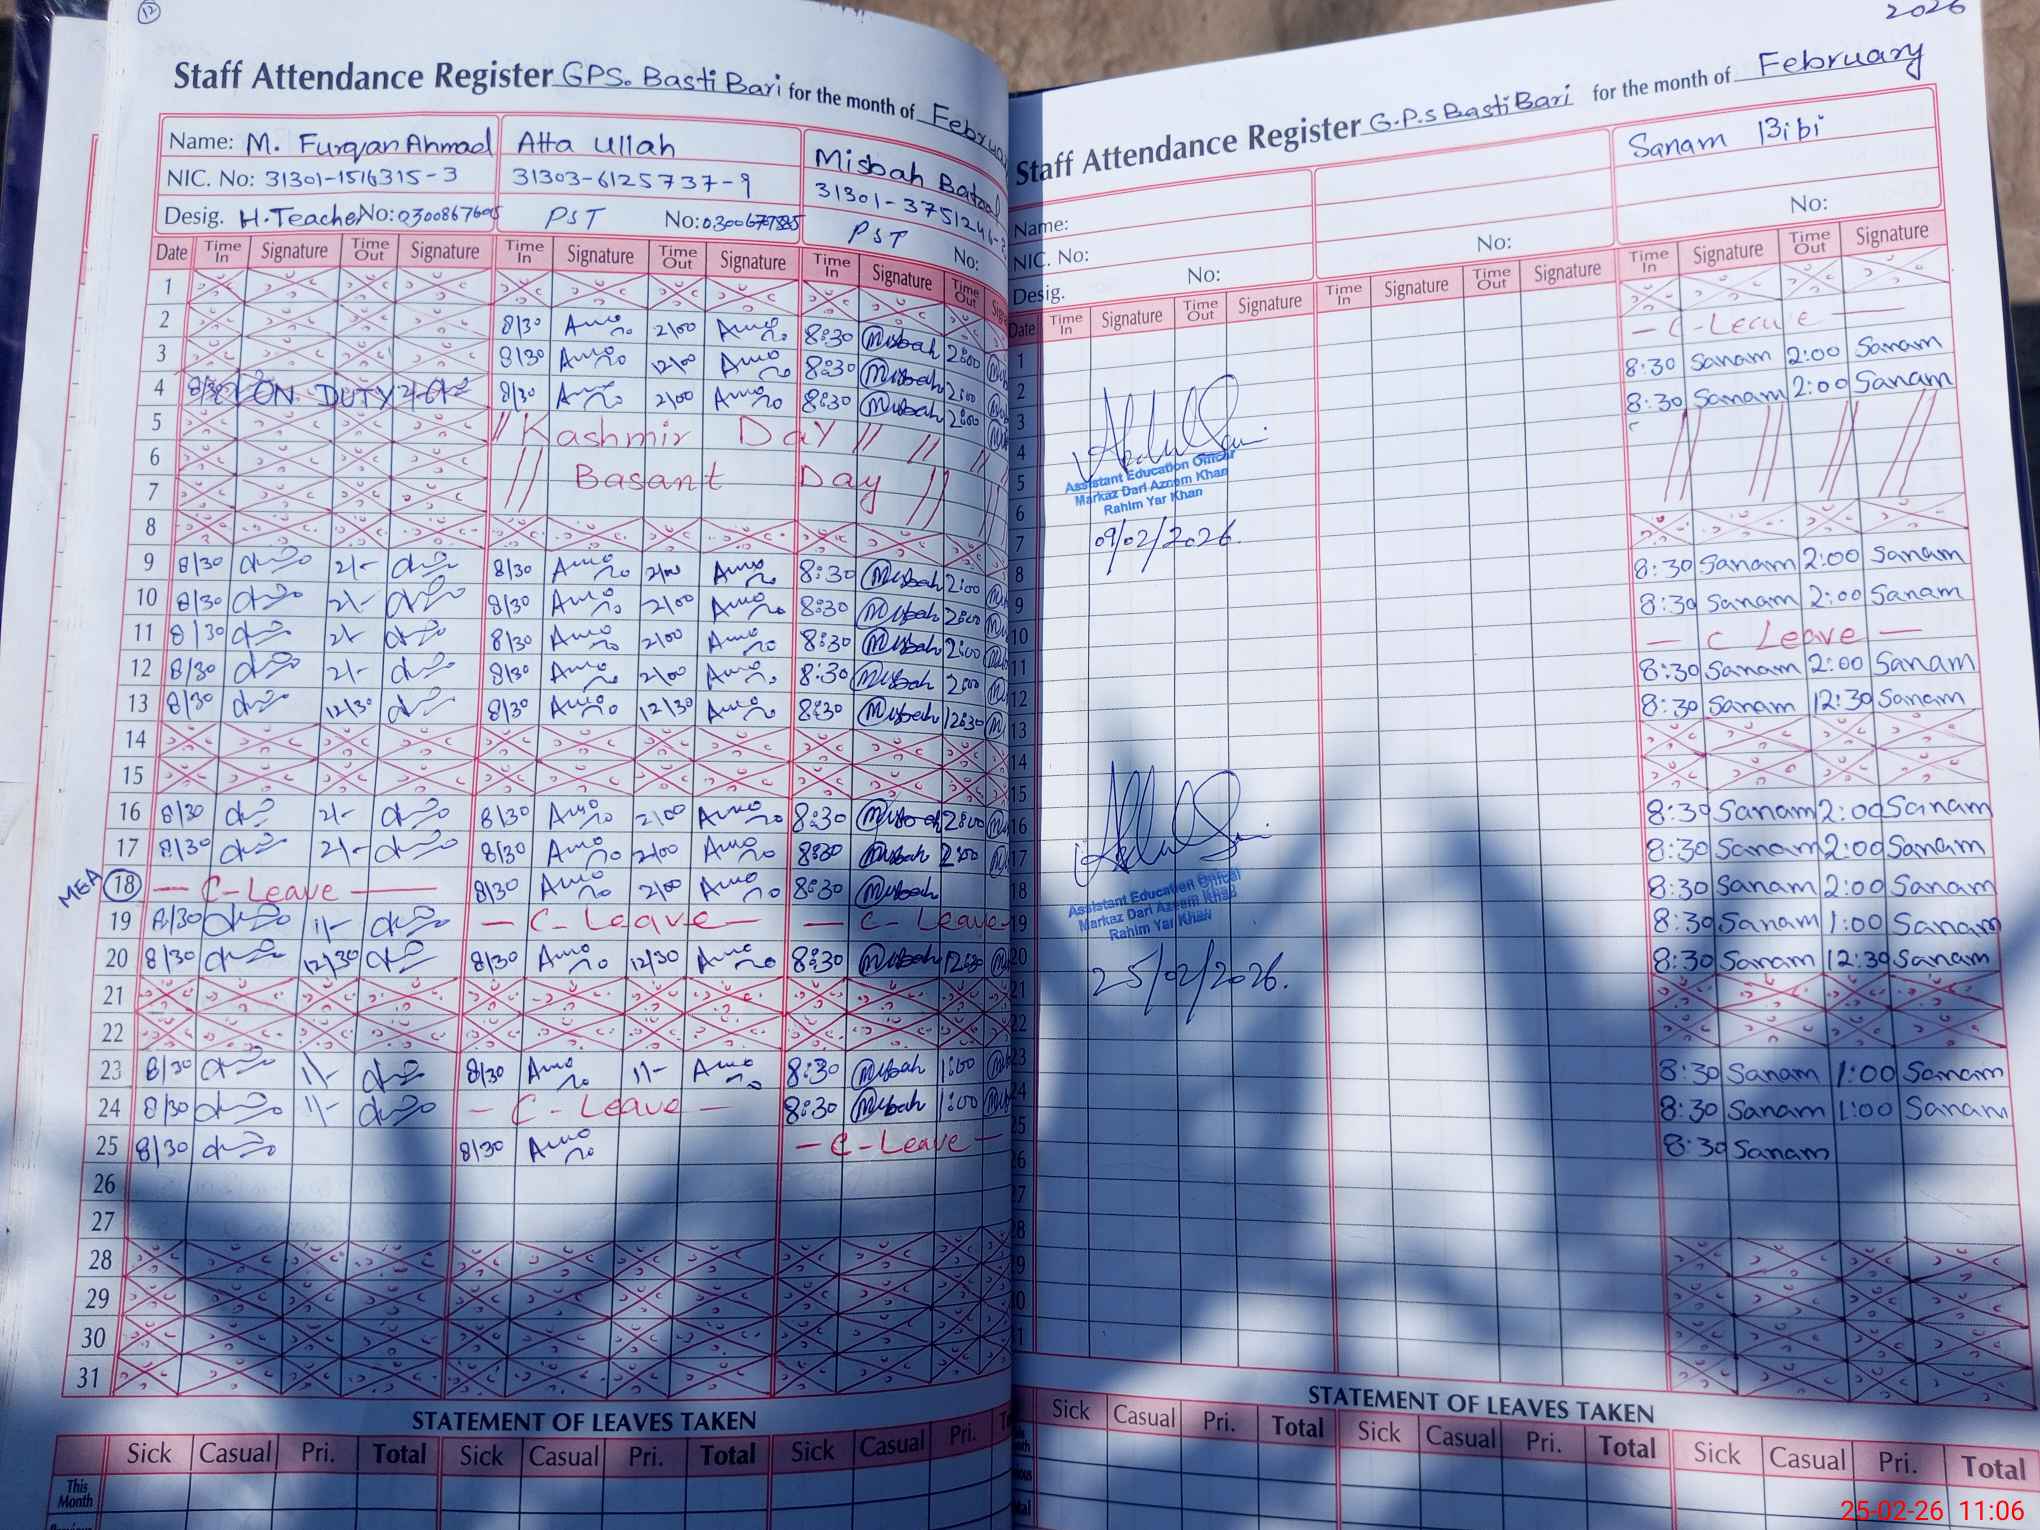 12
Staff Attendance Register GPS. Basti Bari for the month of Februa
Name: M. Furqan Ahmad Atta Ullah Misbah Batool
NIC. No: 31301-1516315-3 31303-6125737-9 31301-3751246-
Desig. H.Teacher No: PST No: PST No:
Date Time In Signature Time Out Signature Time In Signature Time Out Signature Time In Signature Time Out
1
2 8/30 2/00 8:30 Misbah 2:00
3 8/30 12/00 8:30 Misbah 2:00
4 ON DUTY 8/30 2/00 8:30 Misbah 2:00
5 // Kashmir Day // // //
6
7 // Basant Day // //
8
9 8/30 2/- 8/30 2/00 8:30 Misbah 2:00
10 8/30 2/- 8/30 2/00 8:30 Misbah 2:00
11 8/30 2/- 8/30 2/00 8:30 Misbah 2:00
12 8/30 2/- 8/30 2/00 8:30 Misbah 2:00
13 8/30 12/30 8/30 12/30 8:30 Misbah 12:30
14
15
16 8/30 2/- 8/30 2/00 8:30 Misbah 2:00
17 8/30 2/- 8/30 2/00 8:30 Misbah 2:00
MEA 18 - C-Leave - 8/30 2/00 8:30 Misbah
19 8/30 1/- - C-Leave - - C-Leave -
20 8/30 12/30 8/30 12/30 8:30 Misbah 12:30
21
22
23 8/30 1/- 8/30 1/- 8:30 Misbah 1:00
24 8/30 1/- - C-Leave - 8:30 Misbah 1:00
25 8/30 8/30 - C-Leave -
26
27
28
29
30
31
STATEMENT OF LEAVES TAKEN
Sick Casual Pri. Total Sick Casual Pri. Total Sick Casual Pri.
This Month
2026
Staff Attendance Register G.P.S Basti Bari for the month of February
Name: Sanam Bibi
NIC. No: No: No:
Desig. No:
Date Time In Signature Time Out Signature Time In Signature Time Out Signature Time In Signature Time Out Signature
1
2 - C-Leave -
3 8:30 Sanam 2:00 Sanam
4 8:30 Sanam 2:00 Sanam
5 // // // //
6
7
8
9 8:30 Sanam 2:00 Sanam
10 8:30 Sanam 2:00 Sanam
11 - C Leave -
12 8:30 Sanam 2:00 Sanam
13 8:30 Sanam 12:30 Sanam
14
15
16 8:30 Sanam 2:00 Sanam
17 8:30 Sanam 2:00 Sanam
18 8:30 Sanam 2:00 Sanam
19 8:30 Sanam 1:00 Sanam
20 8:30 Sanam 12:30 Sanam
21
22
23 8:30 Sanam 1:00 Sanam
24 8:30 Sanam 1:00 Sanam
25 8:30 Sanam
26
Assistant Education Officer
Markaz Dari Azeem Khan
Rahim Yar Khan
09/02/2026.
Assistant Education Officer
Markaz Dari Azeem Khan
Rahim Yar Khan
25/02/2026.
STATEMENT OF LEAVES TAKEN
Sick Casual Pri. Total Sick Casual Pri. Total Sick Casual Pri. Total
25-02-26 11:06